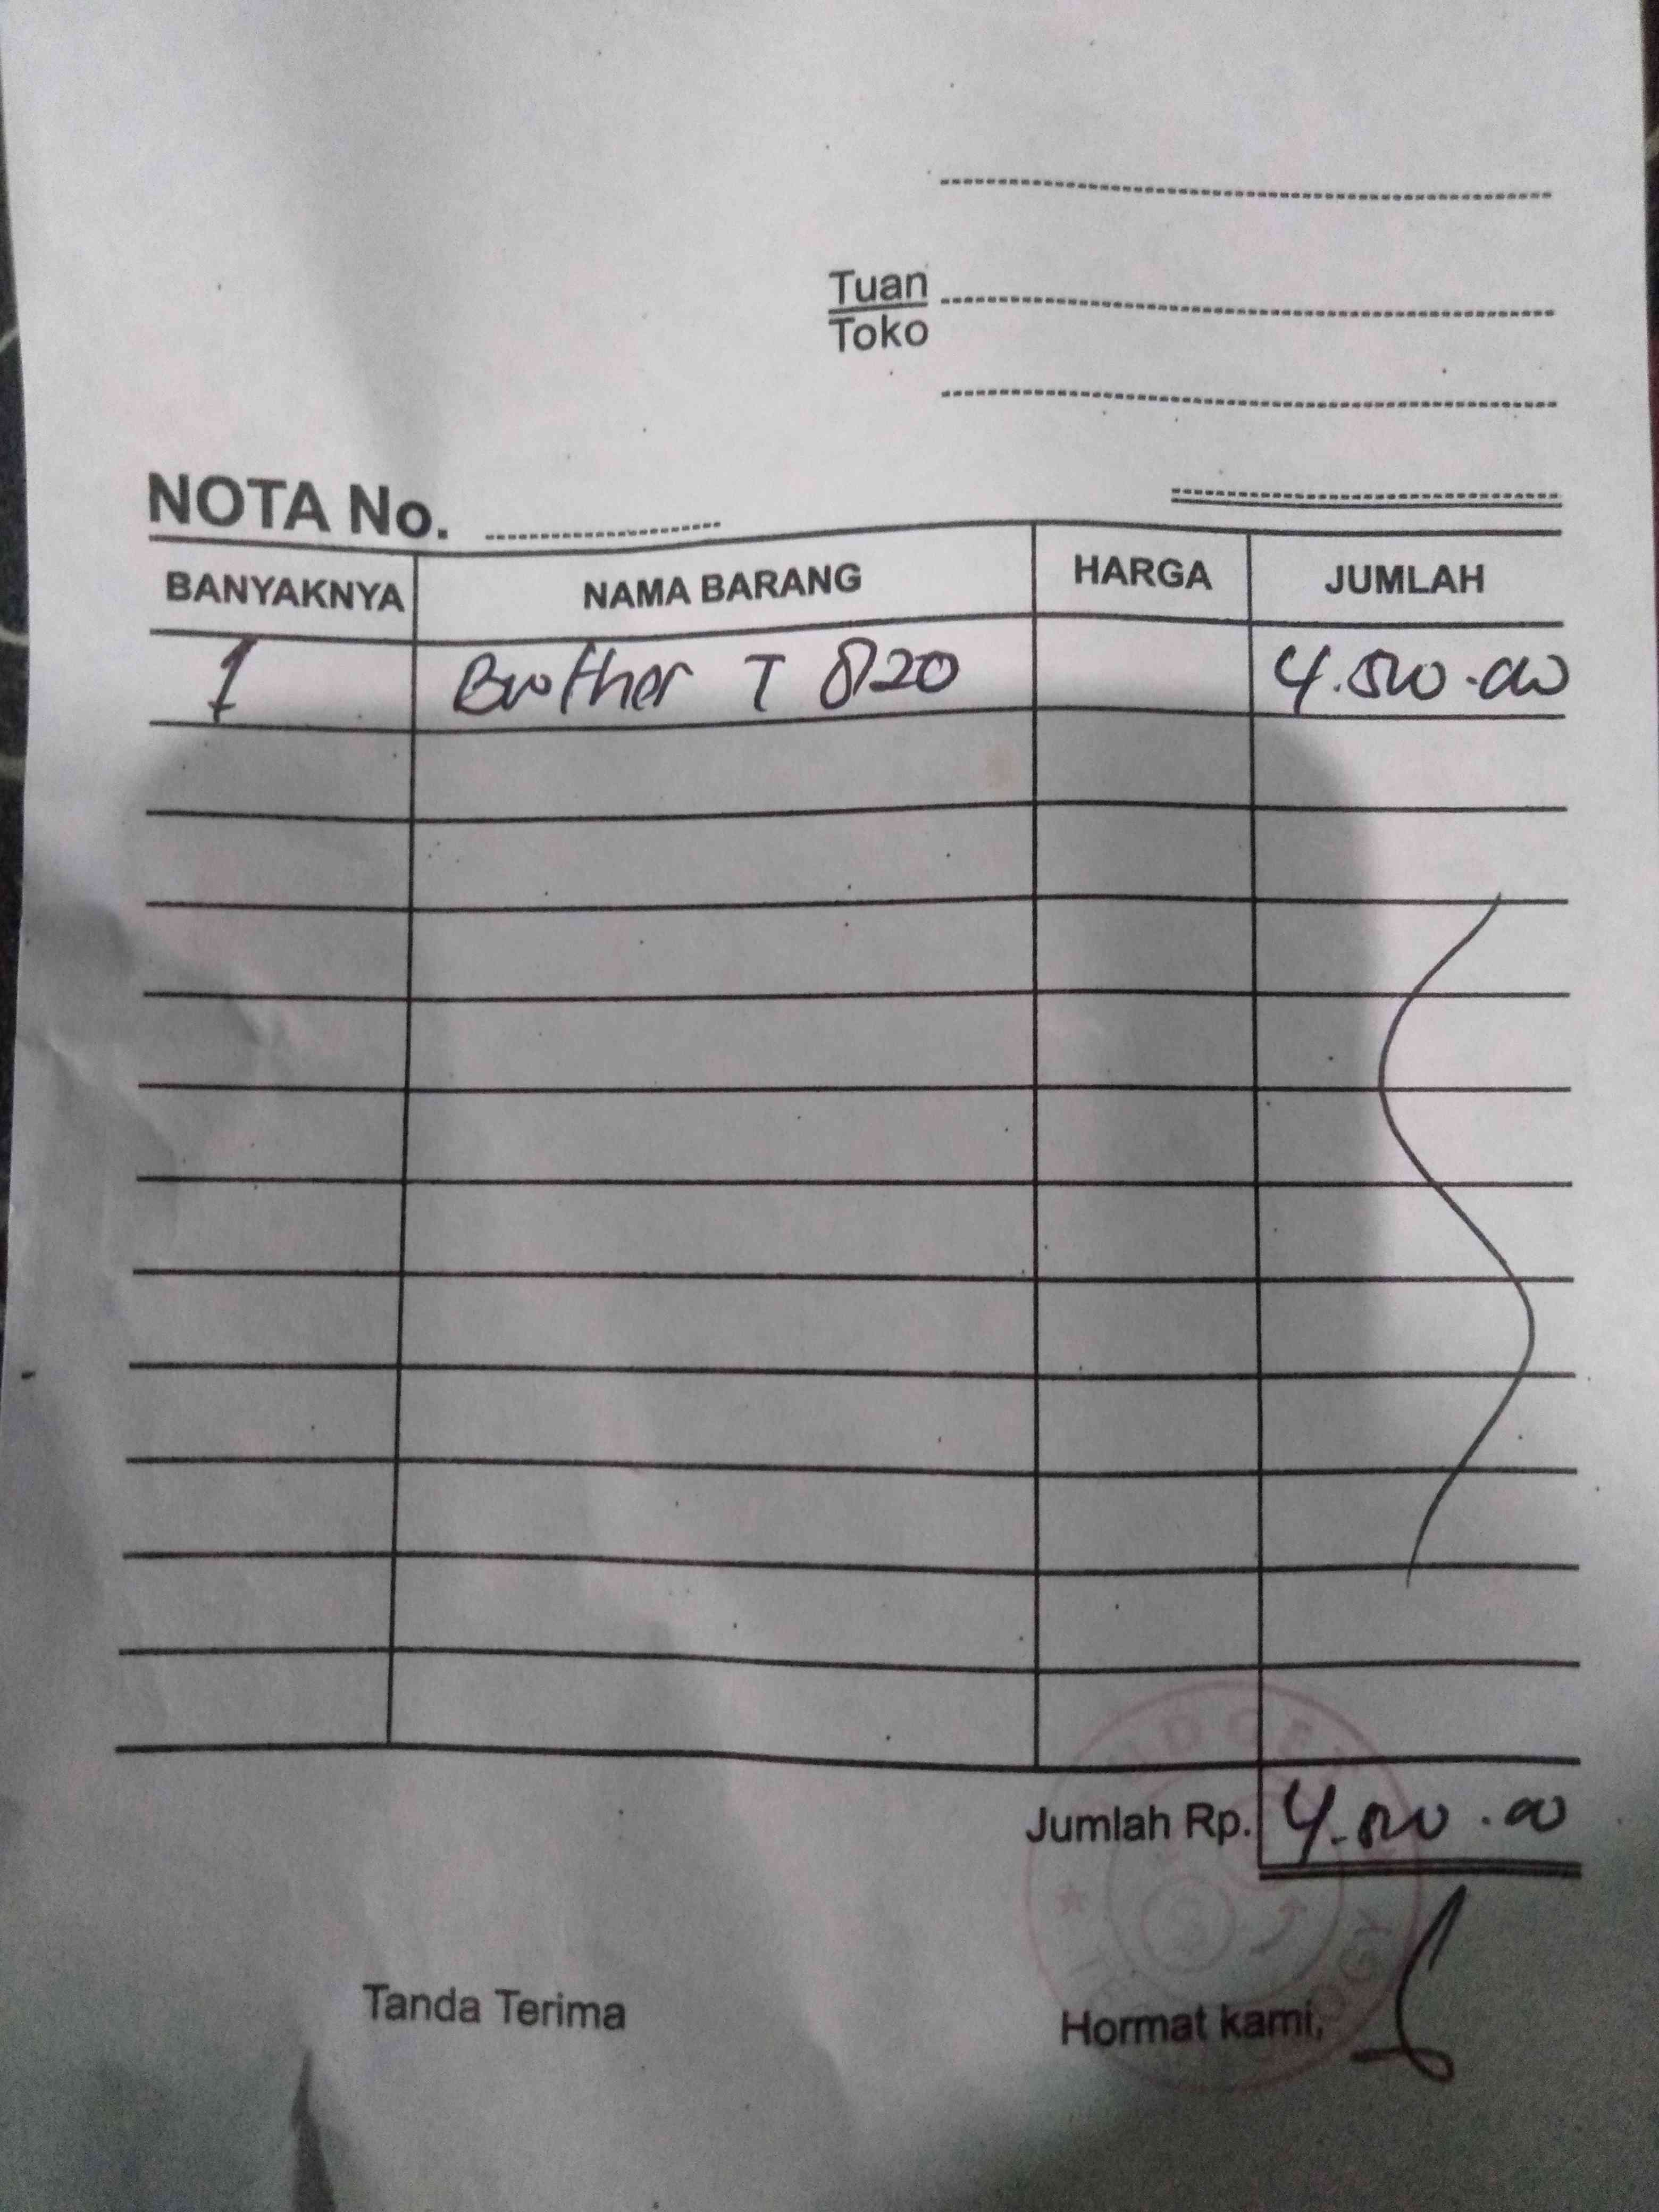 Tuan
Toko
NOTA No.
BANYAKNYA NAMA BARANG HARGA JUMLAH
1 Brother T 820 4.500.000
Jumlah Rp. 4.500.000
Tanda Terima Hormat kami,